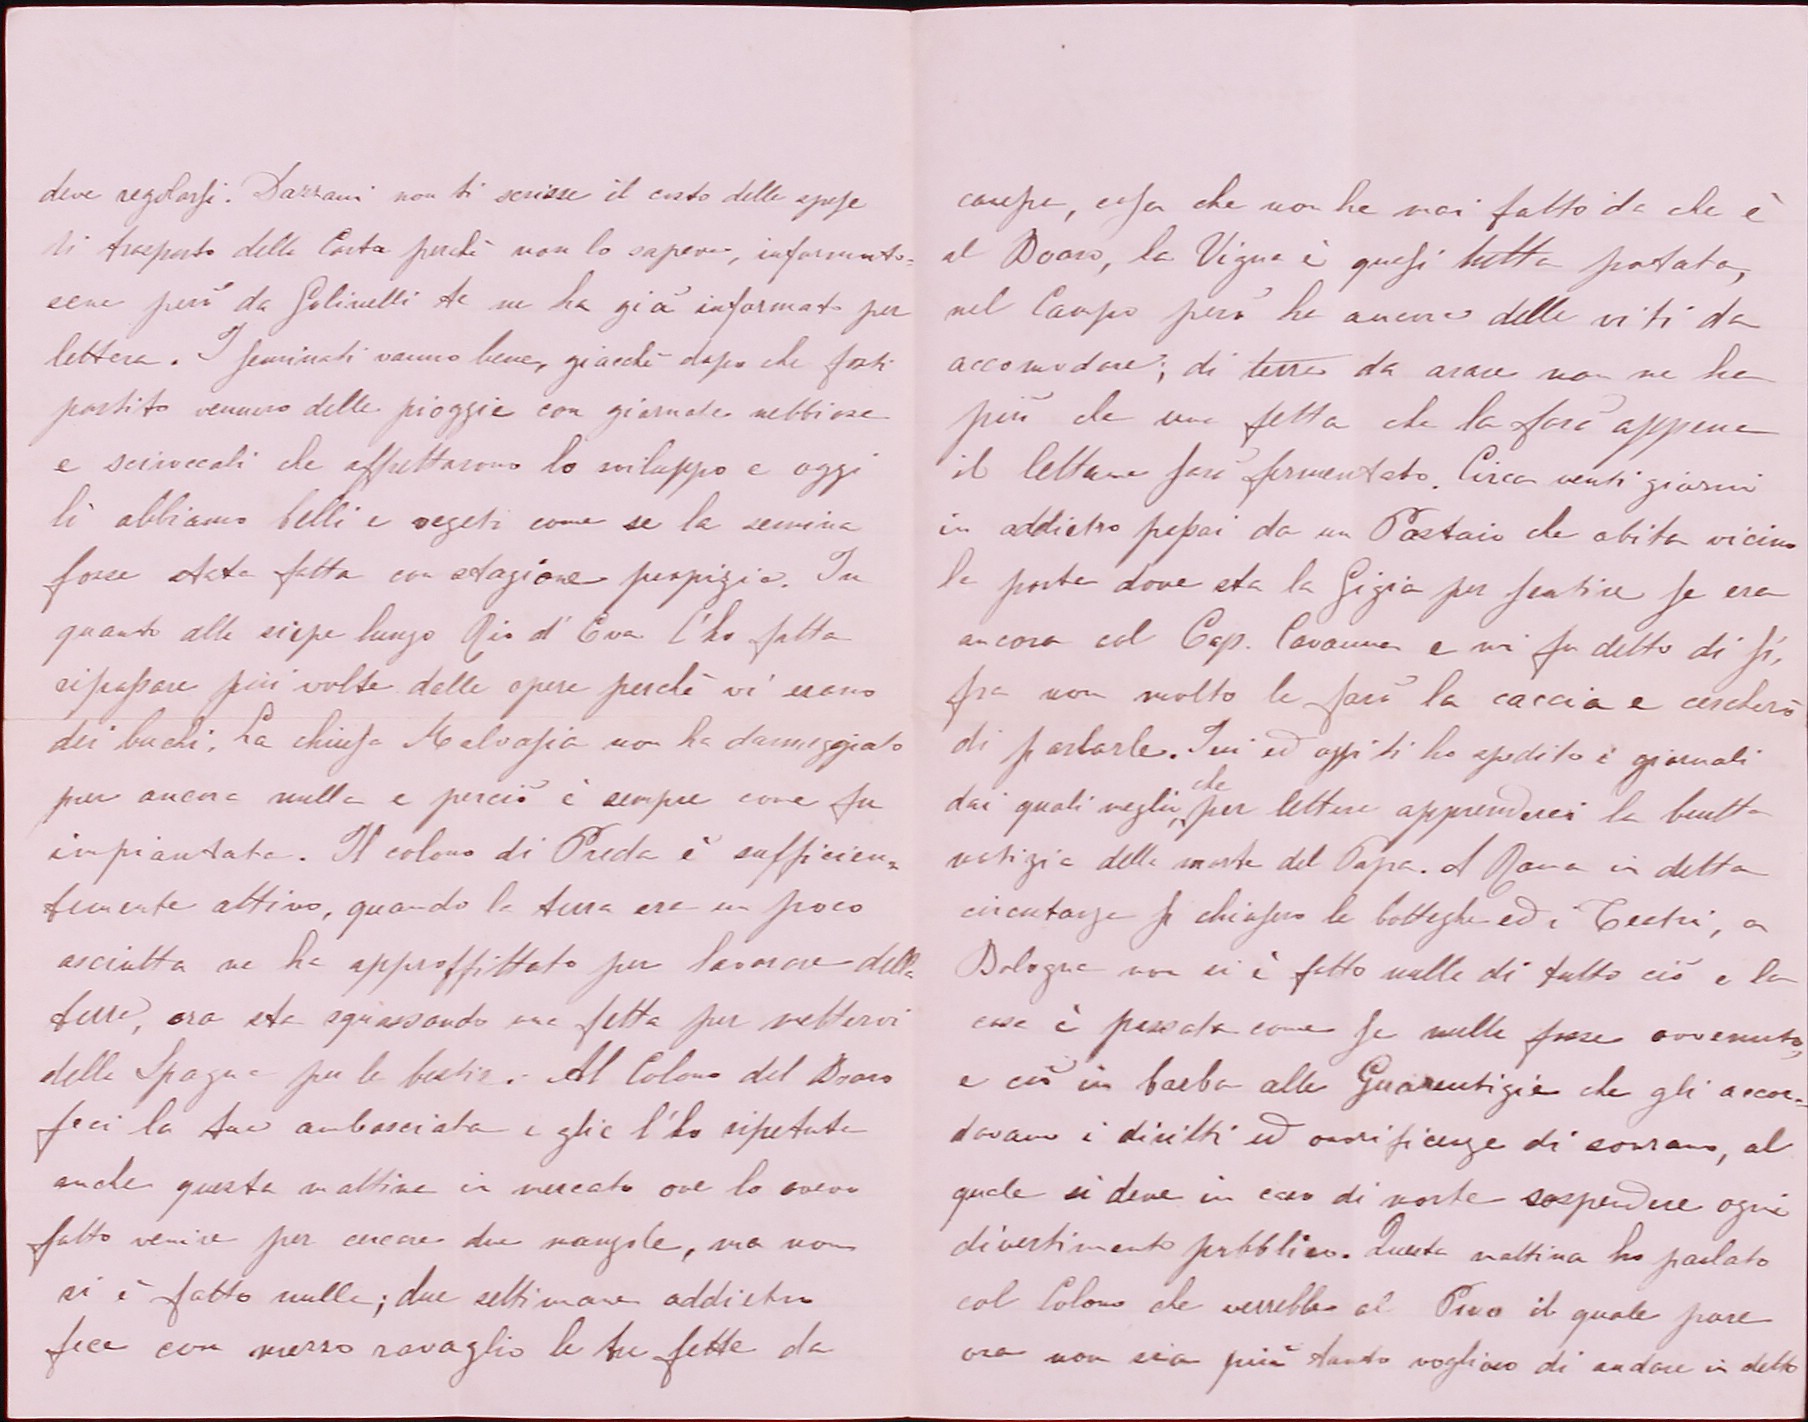 deve regolarsi. Dazzani non ti scrisse il costo delle spese
di trasporto della Carta perchè non lo sapeva, informato=
sene però da Golinelli te ne ha già informato per
lettera. I seminati vanno bene, giacchè dopo che fosti
partito vennero delle pioggie con giornate nebbiose
e sciroccali che affrettarono lo sviluppo e oggi
li abbiamo belli e vegeti come se la semina
fosse stata fatta con stagione propizia. In
quanto alla siepe lungo Rio d' Eva l'ho fatta
ripassare più volte dalle opere perchè vi erano
dei buchi. La chiusa Malvasia non ha danneggiato
per ancora nulla e perciò è sempre come fu
impiantata. Il colono di Preda è sufficien=
temente attivo, quando la terra era un poco
asciutta ne ha approffittato per lavorare della
terra, ora sta squassando una fetta per mettervi
della Spagna per le bestie. Al Colono del Doaro
feci la tua ambasciata e glie l'ho ripetuta
anche questa mattina in mercato ove lo avevo
fatto venire per cercare due manzole, ma non
si è fatto nulla; due settimane addietro
fece con mezzo ravaglio le tue fette da
canepa, cosa che non ha mai fatto da che è
al Doaro, la Vigna è quasi tutta potata,
nel Campo però ha ancora delle viti da
accomodare; di terra da arare non ne ha
più che una fetta che la farà appena
il lettame sarà fermentato. Circa venti giorni
in addietro passai da un Postaio che abita vicino
la porta dove sta la Gigia per sentire se era
ancora col Cap. Cavanna e mi fu detto di sì,
fra non molto le farò la caccia e cercherò
di parlarle. Ieri ed oggi ti ho spedito i giornali
dai quali meglio che per lettera apprenderai la brutta
notizia della morte del Papa. A Roma in detta
circostanza si chiusero le botteghe ed i Teatri, a
Bologna non si è fatto nulla di tutto ciò e la
cosa è passata come se nulla fosse avvenuto,
e ciò in barba alle Guarentigie che gli accor=
davano i diritti ed onorificenze di sovrano, al
quale si deve in caso di morte sospendere ogni
divertimento pubblico. Questa mattina ho parlato
col Colono che verrebbe al Pino il quale pare
ora non sia più tanto voglioso di andare in detto